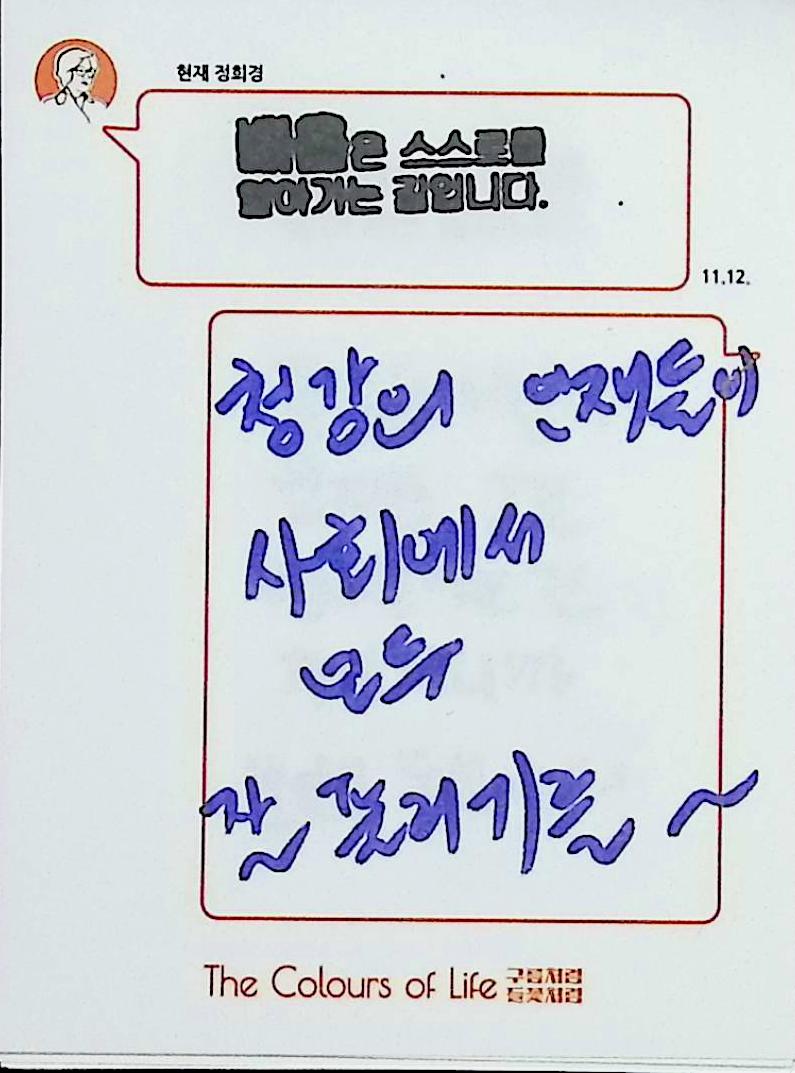 현재 정희경
배움은 스스로를
알아가는 길입니다.
11.12.
청강의 인재들이
사회에서
모두
잘 풀리기를 ~
The Colours of Life 구름처럼
들꽃처럼